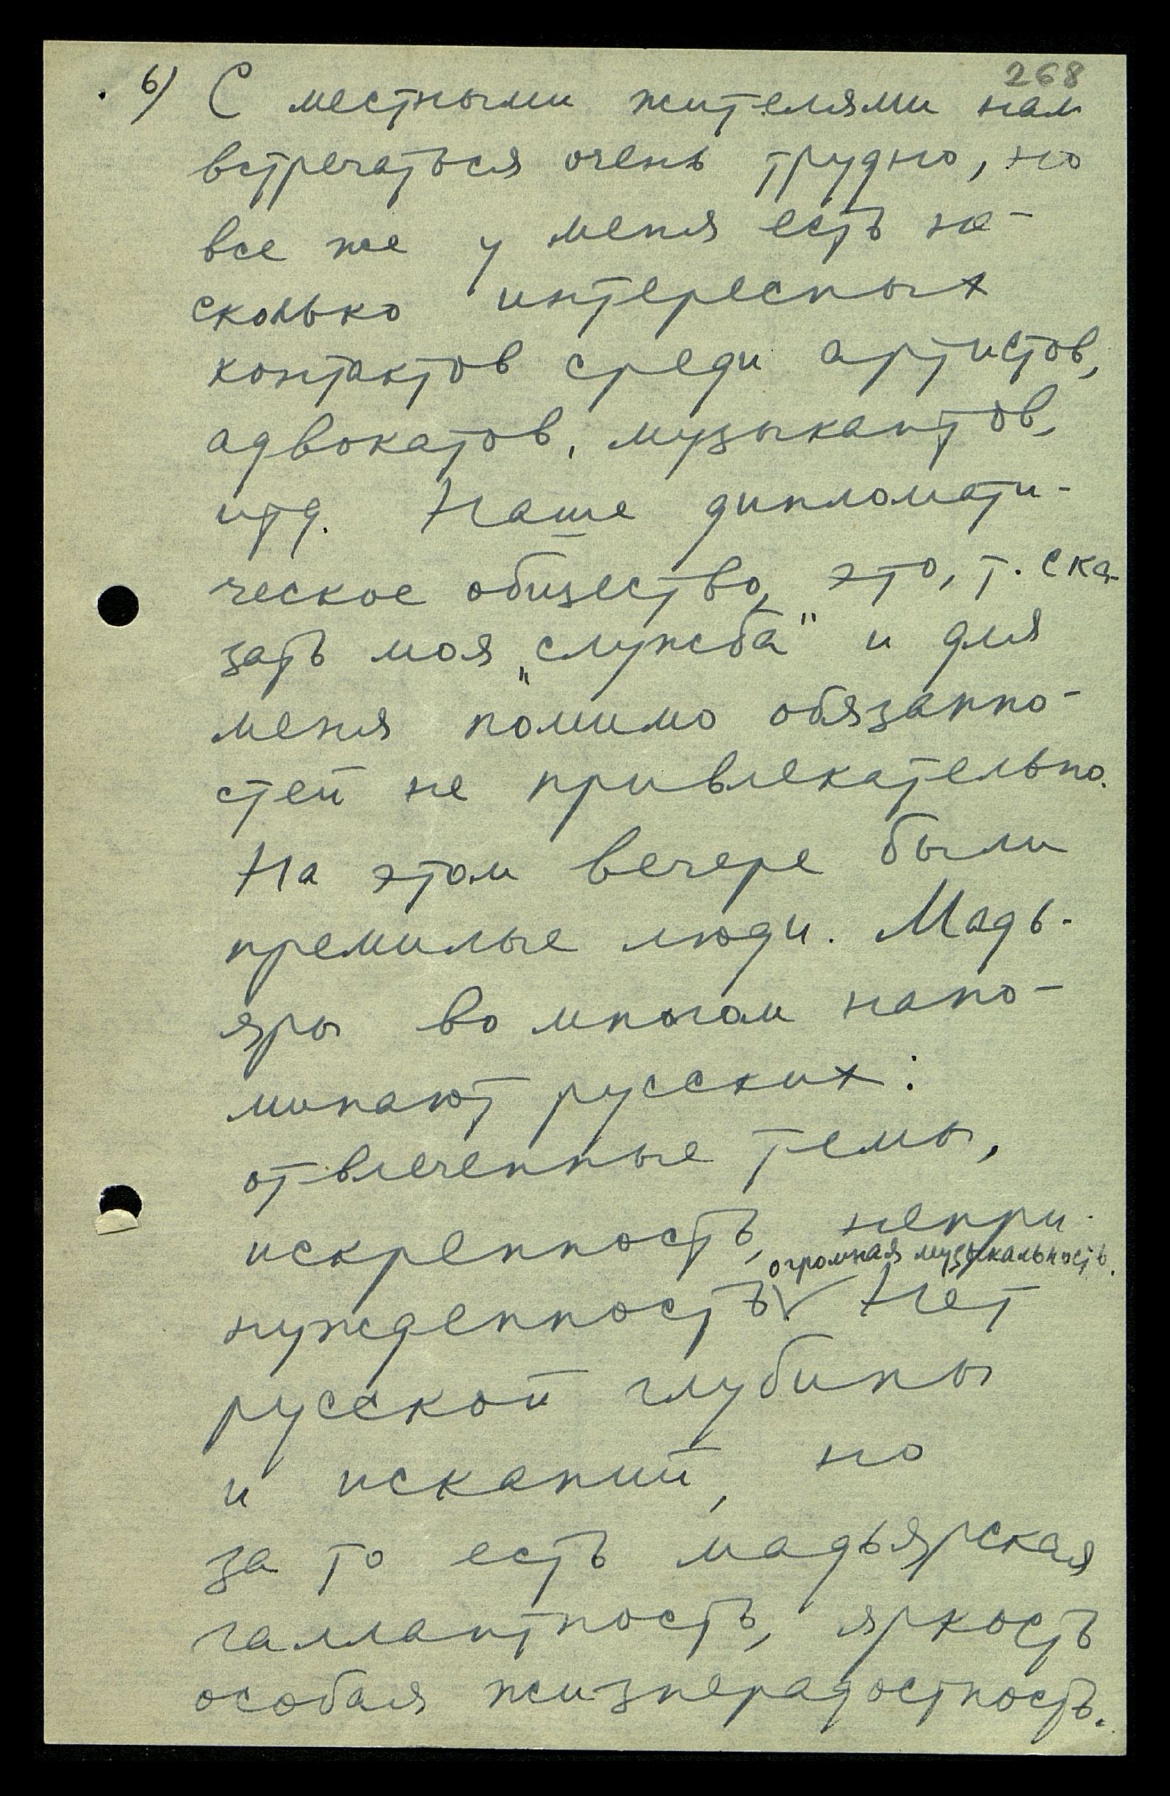 268
6) С местными жителями нам
встречаться очень трудно, но
все же у меня есть не-
сколько интересных
контактов среди артистов,
адвокатов, музыкантов,
итд. Наше дипломати-
ческое общество, это, т. ска-
зать моя „служба" и для
меня помимо обязанно-
стей не привлекательно.
На этом вечере были
премилые люди. Мадь-
яры во многом напо-
минают русских:
отвлеченные темы,
искренность, непри-
огромная музыкальность.
нужденность √ Нет
русской глубины
и исканий, но
за то есть мадьярская
галлантность, яркость
особая жизнерадостность.